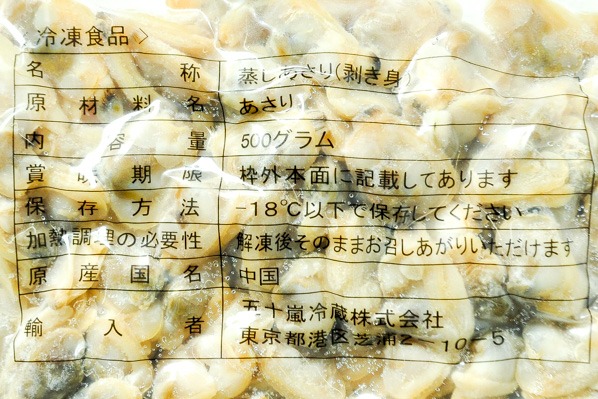 〈冷凍食品〉
名称 蒸しあさり(剥き身)
原材料名 あさり
内容量 500グラム
賞味期限 枠外本面に記載してあります
保存方法 -18℃以下で保存してください
加熱調理の必要性 解凍後そのままお召しあがりいただけます
原産国名 中国
輸入者 五十嵐冷蔵株式会社
東京都港区芝浦2-10-5